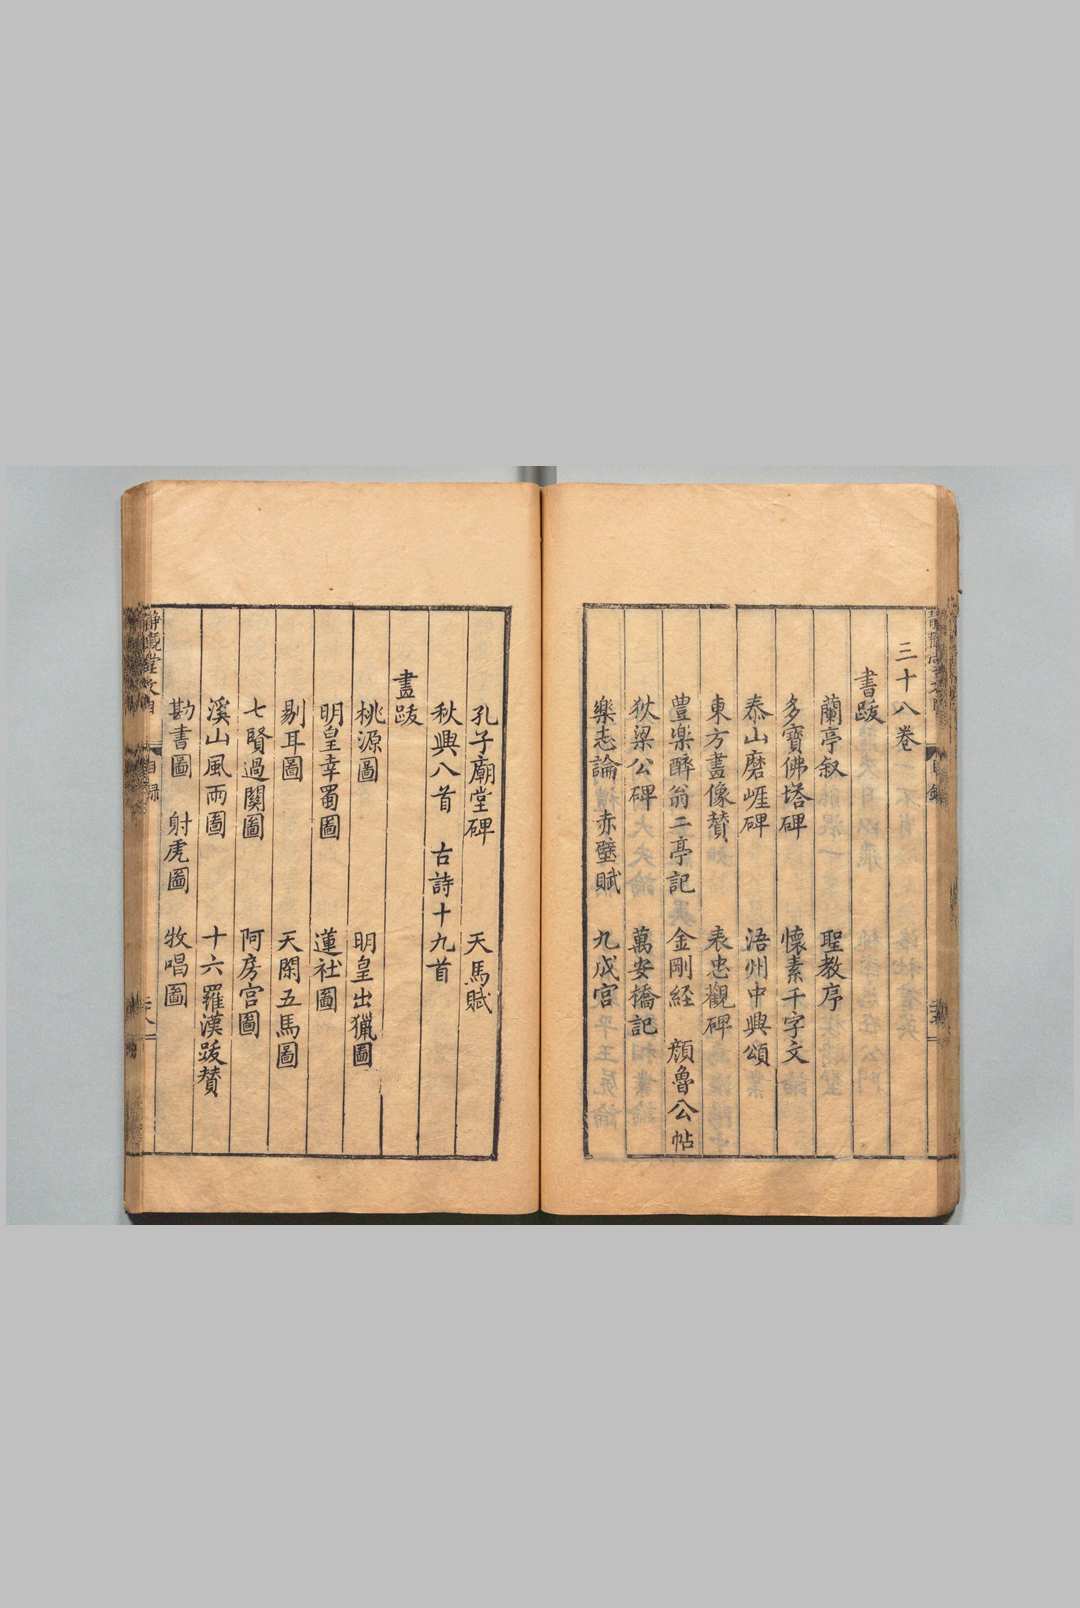 三十八卷
書跋
蘭亭叙　聖教序
多寶佛塔碑　懷素千字文
泰山磨崕碑　浯州中興頌
東方畫像贊　表忠觀碑
豊樂醉翁二亭記　金剛経　顔魯公帖
狄梁公碑　萬安橋記
樂志論　赤壁賦　九成宮
孔子廟堂碑　天馬賦
秋興八首　古詩十九首
畫跋
桃源圖　明皇出獵圖
明皇幸蜀圖　蓮社圖
剔耳圖　天閑五馬圖
七賢過関圖　阿房宮圖
溪山風雨圖　十六羅漢跋贊
勘書圖　射虎圖　牧唱圖
目録